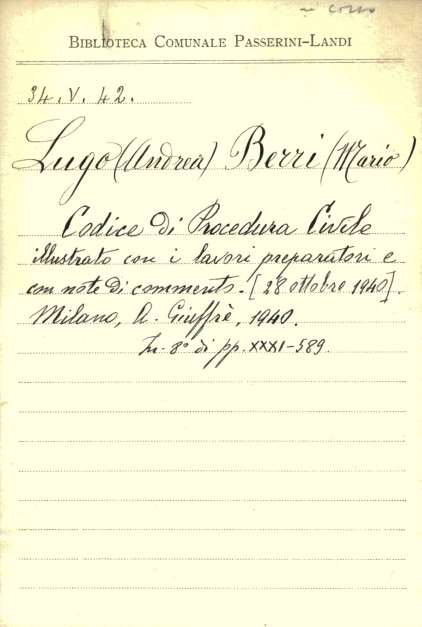 in corso
BIBLIOTECA COMUNALE PASSERINI-LANDI
34. V. 42.
Lugo (Andrea) Berri (Mario)
Codice di Procedura Civile
illustrato con i lavori preparatori e
con note di commento. [28 ottobre 1940].
Milano, A. Giuffrè, 1940.
In-8° di pp. XXXI-589.